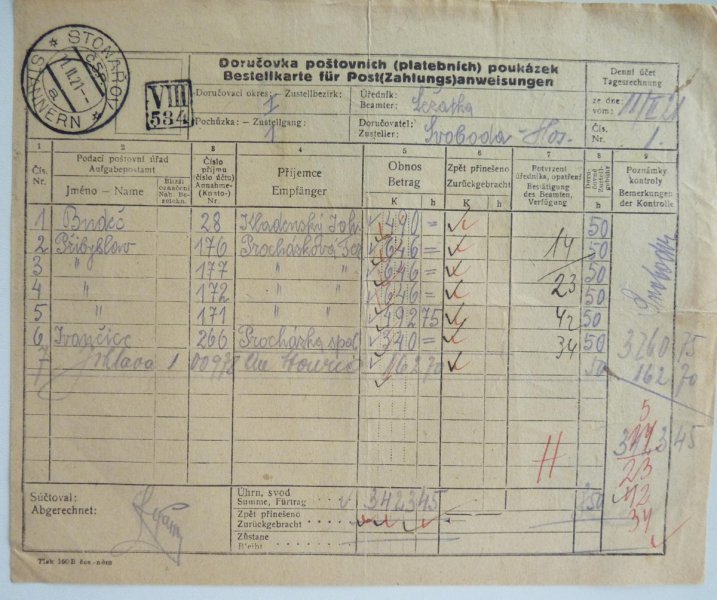 STONAŘOV
ČSP
1.II.21-
a
STANNERN
VIII
584
Doručovka poštovních (platebních) poukázek
Bestellkarte für Post(Zahlungs)anweisungen
Denní účet
Tagesrechnung
Doručovací okres: - Zustellbezirk: I
Úředník:
Beamter:
ze dne:
vom:
Pochůzka: - Zustellgang: 1
Doručovatel:
Zusteller: Svoboda
Čís.
Nr. 1.
1 2 3 4 5 6 7 8 9
Čís.
Nr.
Podací poštovní úřad
Aufgabepostamt
Jméno - Name
Bližší
označení
Náh. Be-
zeichn.
Číslo
příjmu
(číslo účtu)
Annahme-
(Konto-)
Nr.
Příjemce
Empfänger
Obnos
Betrag
K h
Zpět přineseno
Zurückgebracht
K h
Potvrzení
úředníka, opatření
Bestätigung
des Beamten,
Verfügung
h
Poznámky
kontroly
Bemerkungen
der Kontrolle
1 Budeč 28 Kladenský Joh 490 = 50
2 Přibyslav 176 Procházková 646 = 14 50
3 " 177 " " 646 = 50
4 " 172 " " 646 = 23 50
5 " 171 " " 492 75 42 50
6 Ivančice 266 Procházka 340 = 34 50 3260 75
7 Jihlava 1 162 70 50 162 70
Svoboda
5
3423 45
23
42
34
Súčtoval:
Abgerechnet:
Úhrn, svod
Summe, Fürtrag 3423 45
Zpět přineseno
Zurückgebracht
Zůstane
Bleibt
Tisk 160 B čes.-něm